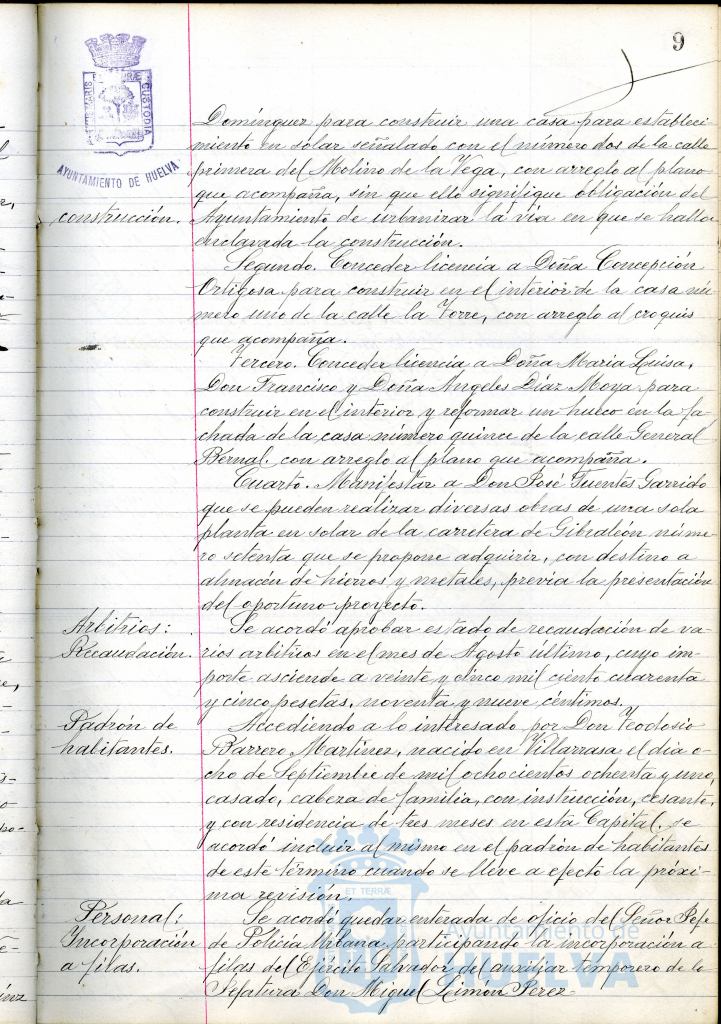 9
PORTUS MARIS ET TERRÆ CUSTODIA
AYUNTAMIENTO DE HUELVA
Domínguez para construir una casa para estableci
miento en solar señalado con el número dos de la calle
primera del Molino de la Vega, con arreglo al plano
que acompaña, sin que ello signifique obligación del
construcción. Ayuntamiento de urbanizar la vía en que se halla
enclavada la construcción.
Segundo. Conceder licencia a Doña Concepción
Ortigosa para construir en el interior de la casa nú-
mero uno de la calle la Torre, con arreglo al croquis
que acompaña.
Tercero. Conceder licencia a Doña María Luisa,
Don Francisco y Doña Angeles Díaz Moya para
construir en el interior y reformar un hueco en la fa-
chada de la casa número quince de la calle General
Bernal, con arreglo al plano que acompaña.
Cuarto. Manifestar a Don José Fuentes Garrido
que se pueden realizar diversas obras de una sola
planta en solar de la carretera de Gibraleón núme-
ro setenta que se propone adquirir, con destino a
almacén de hierros y metales, previa la presentación
del oportuno proyecto.
Arbitrios: Se acordó aprobar estado de recaudación de va-
Recaudación. rios arbitrios en el mes de Agosto último, cuyo im-
porte asciende a veinte y cinco mil ciento cuarenta
y cinco pesetas, noventa y nueve céntimos.
Padrón de Accediendo a lo interesado por Don Teodosio
habitantes. Barrero Martínez, nacido en Villarrasa el día o-
cho de Septiembre de mil ochocientos ochenta y uno,
casado, cabeza de familia, con instrucción, cesante,
y con residencia de tres meses en esta Capital, se
acordó incluir al mismo en el padrón de habitantes
de este término cuando se lleve a efecto la próxi-
ma revisión.
Personal: Se acordó quedar enterada de oficio del Señor Jefe
Incorporación de Policía Urbana participando la incorporación a
a filas. filas del Ejército Salvador del auxiliar temporero de la
Jefatura Don Miguel Limón Pérez-
ET TERRÆ
Ayuntamiento de
HUELVA